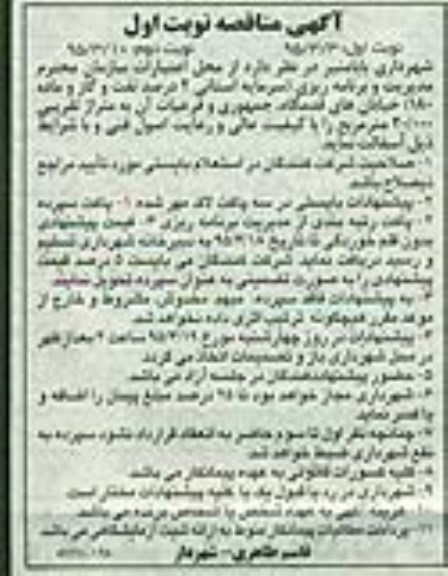 آگهی مناقصه نوبت اول
نوبت اول: ۹۵/۳/۳ نوبت دوم: ۹۵/۳/۱۰
شهرداری بابامنیر در نظر دارد از محل اعتبارات سازمان محترم
مدیریت و برنامه ریزی (سرمایه استانی ۲ درصد نفت و گاز و ماده
۱۸۰) خیابان های جمهوری و فرعیات آن به متراژ تقریبی
مترمربع را با کیفیت عالی و رعایت اصول فنی و با شرایط
ذیل آسفالت نماید
۱- صلاحیت شرکت کنندگان در استعلام بایستی مورد تأیید مراجع
ذیصلاح باشد
۲- پیشنهادات بایستی در سه پاکت لاک مهر شده ۱- پاکت سپرده
۲- پاکت رتبه بندی از مدیریت برنامه ریزی ۳- قیمت پیشنهادی
بدون قلم خوردگی تا تاریخ ۹۵/۳/۱۸ به دبیرخانه شهرداری تسلیم
و رسید دریافت نماید شرکت کنندگان می بایست ۵ درصد قیمت
پیشنهادی را به صورت تضمینی به عنوان سپرده تحویل نمایند
۳- به پیشنهادات فاقد سپرده، مبهم مخدوش، مشروط و خارج از
موعد مقرر هیچگونه ترتیب اثری داده نخواهد شد
۴- پیشنهادات در روز چهارشنبه مورخ ۹۵/۳/۱۹ ساعت ۲ بعدازظهر
در محل شهرداری باز و تصمیمات اتخاذ می گردد
۵- حضور پیشنهاددهندگان در جلسه آزاد می باشد
۶- شهرداری مجاز خواهد بود تا ۲۵ درصد مبلغ پیمان را اضافه و
یا کسر نماید
۷- چنانچه نفر اول تا سوم حاضر به انعقاد قرارداد نشود سپرده به
نفع شهرداری ضبط خواهد شد
۸- کلیه کسورات قانونی به عهده پیمانکار می باشد
۹- شهرداری در رد یا قبول یک یا کلیه پیشنهادات مختار است
۱۰- هزینه آگهی به عهده شخص یا اشخاص برنده می باشد
۱۱- پرداخت مطالبات پیمانکار منوط به ارائه تست آزمایشگاهی می باشد
قاسم طاهری- شهردار